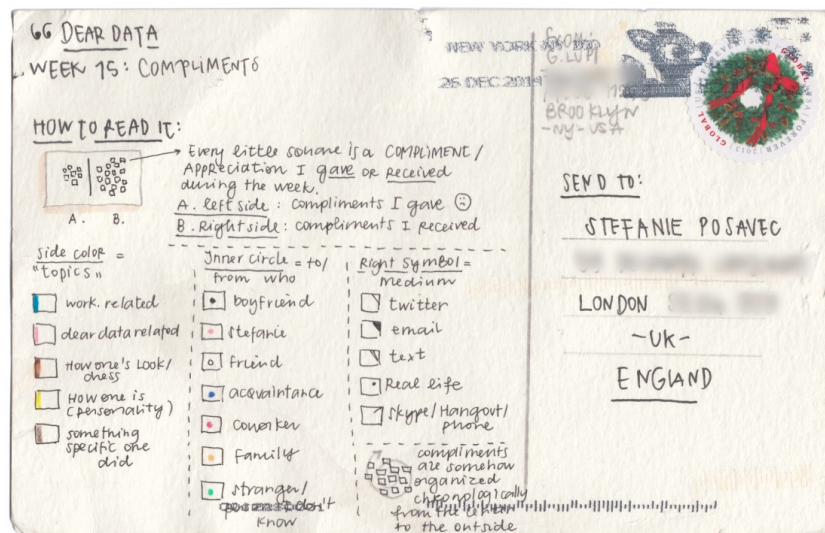 DEAR DATA
WEEK 15: COMPLIMENTS
HOW TO READ IT:
A. B.
Every little square is a COMPLIMENT/
APPRECIATION I gave or received
during the week.
A. left side: compliments I gave
B. Right side: compliments I received
side color =
"topics"
work. related
dear data related
How one's Look/
dress
How one is
(personality)
something
specific one
did
Inner circle = to/
from who
boyfriend
stefanie
friend
acquaintance
coworker
family
stranger/
don't
know
Right symbol =
medium
twitter
email
text
Real life
skype/Hangout/
phone
compliments
are somehow
organized
chronologically
from the center
to the outside
NEW YORK
26 DEC 2014
From:
G. LUPI
BROOKLYN
-NY-USA
GLOBAL
FOREVER
GLOBAL
SEND TO:
STEFANIE POSAVEC
LONDON
-UK-
ENGLAND